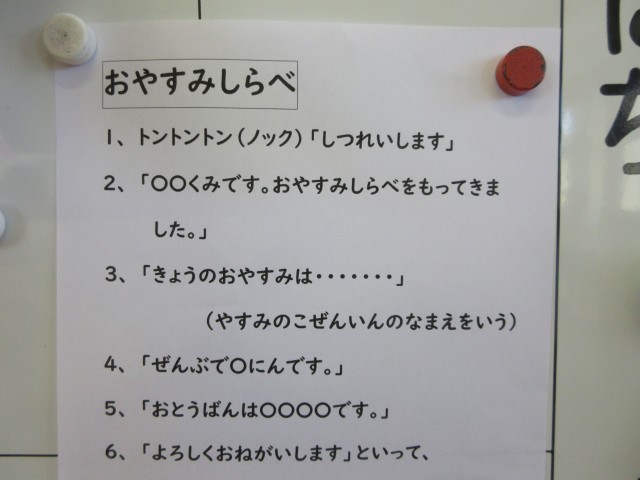 おやすみしらべ
1、トントントン(ノック)「しつれいします」
2、「〇〇くみです。おやすみしらべをもってきま
した。」
3、「きょうのおやすみは・・・・・・・」
(やすみのこぜんいんのなまえをいう)
4、「ぜんぶで〇にんです。」
5、「おとうばんは〇〇〇〇です。」
6、「よろしくおねがいします」といって、